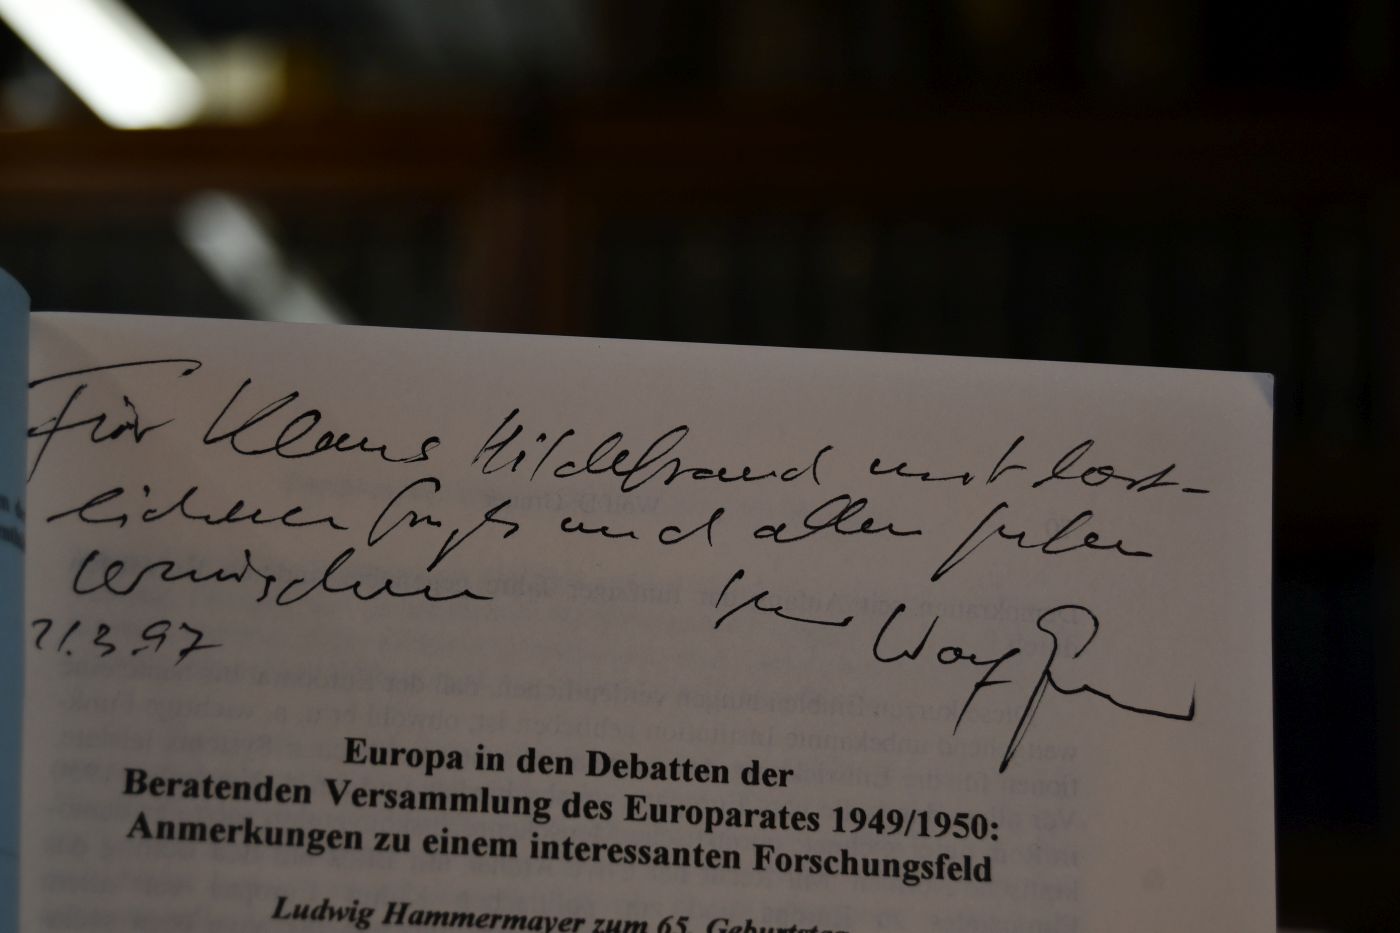 Für Klaus Hildebrand mit herz-
lichem Gruß und allen guten
Wünschen Ihr Wolf
21.3.97
Europa in den Debatten der
Beratenden Versammlung des Europarates 1949/1950:
Anmerkungen zu einem interessanten Forschungsfeld
Ludwig Hammermayer zum 65. Geburtstag